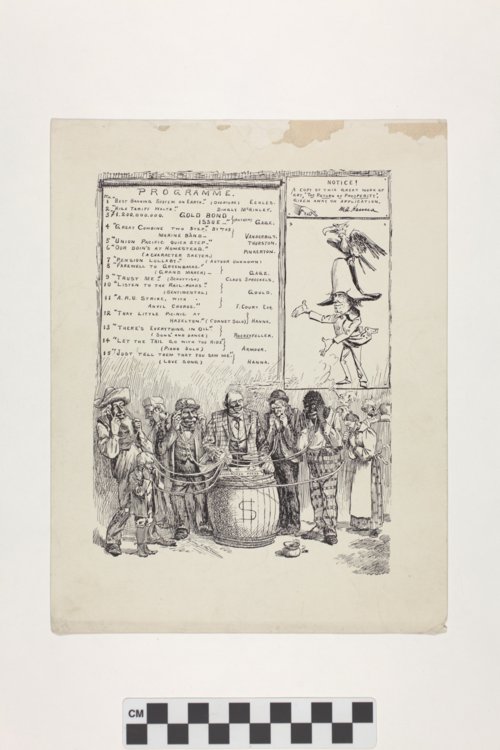 PROGRAMME.
1 "BEST BANKING SYSTEM ON EARTH." (OVERTURE) ECKLES.
2 "HIGH TARIFF WALTZ." DINGLY MCKINLEY.
3 $8,200,000,000. GOLD BOND
ISSUE (ANTHEM) GAGE.
4 "GREAT COMBINE TWO STEP," BY THE
MARINE BAND VANDERBILT.
5 "UNION PACIFIC QUICK STEP." THURSTON.
6 "OUR DOIN'S AT HOMESTEAD." PINKERTON.
(A CHARACTER SKETCH)
7 "PENSION LULLABY." (AUTHOR UNKNOWN)
8 "FAREWELL TO GREENBACKS."
(GRAND MARCH) GAGE.
9 "TRUST ME." (DESCRIPTIVE) CLAUS SPRECKELS.
10 "LISTEN TO THE RAIL-ROADS."
(SENTIMENTAL) GOULD.
11 "A.R.U. STRIKE, WITH
ANVIL CHORUS." F. COURT ESQ.
12 "THAT LITTLE PIC-NIC AT
HAZELTON." (CORNET SOLO) HANNA.
13 "THERE'S EVERYTHING IN OIL."
(SONG AND DANCE) ROCKEFELLER.
14 "LET THE TAIL GO WITH THE HIDE"
(PIANO SOLO) ARMOUR.
15 "JUST TELL THEM THAT YOU SAW ME"
(LOVE SONG) HANNA.
NOTICE!
A COPY OF THIS GREAT WORK OF
ART, "THE RETURN OF PROSPERITY,"
GIVEN AWAY ON APPLICATION.
M.A. HANNA
$
CM